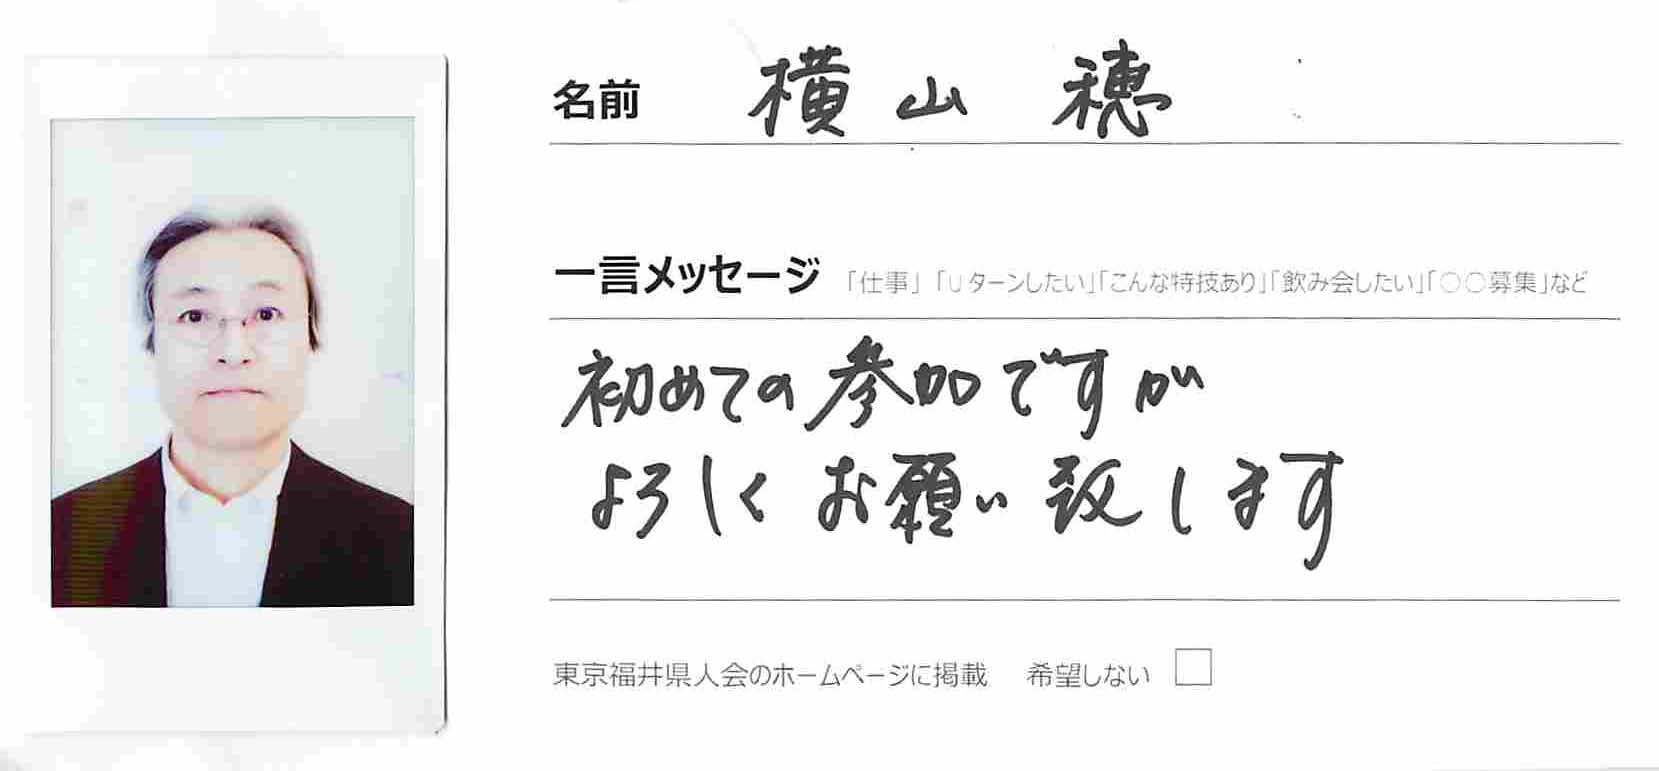 名前 横山 穂
一言メッセージ 「仕事」「Uターンしたい」「こんな特技あり」「飲み会したい」「○○募集」など
初めての参加ですが
よろしくお願い致します
東京福井県人会のホームページに掲載 希望しない □